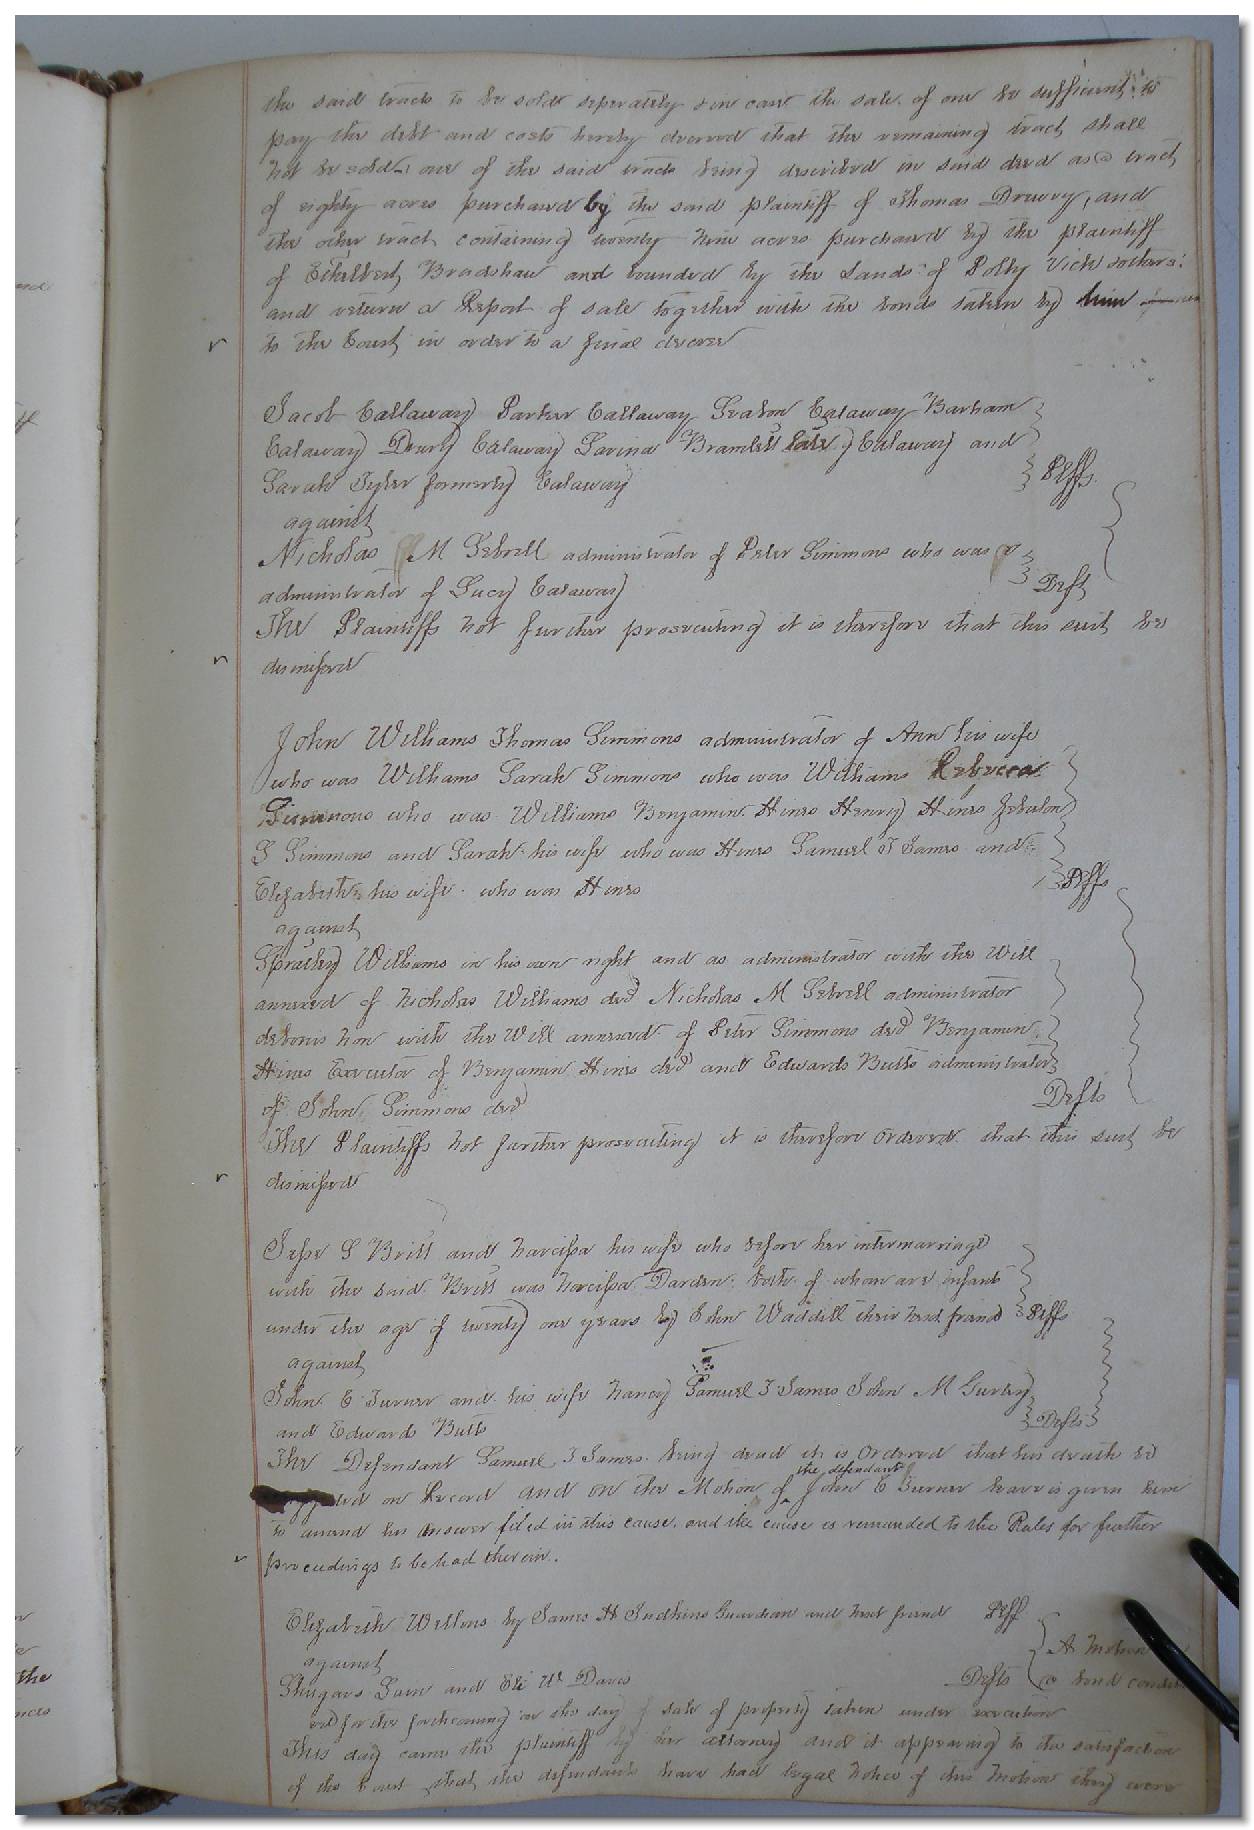 the said tracts to be sold seperately & in case the sale of one be sufficient to
pay the debt and costs hereby decreed that the remaining tract shall
not be sold one of the said tracts being described in said deed as a tract
of eighty acres purchased by the said plaintiff of Thomas Drewry, and
the other tract containing twenty nine acres purchased by the plaintiff
of Ethelbert Bradshaw and bounded by the Lands of Polly Vick & others
and return a Report of sale together with the bonds taken by him
to the Court in order to a final decree
Jacob Callaway Parker Callaway Calaway Barham
Calaway Drury Calaway Lavina Bramlett late Calaway and
Sarah Tyler formerly Calaway Pltffs
against
Nicholas M Sebrell administrator of Peter Simmons who was
administrator of Lucy Calaway Deft
The Plaintiffs not further prosecuting it is therefore that this suit be
dismissed
John Williams Thomas Simmons administrator of Ann his wife
who was Williams Sarah Simmons who was Williams Rebecca
Simmons who was Williams Benjamin Hines Henry Hines
S Simmons and Sarah his wife who was Hines Samuel T James and
Elizabeth his wife who was Hines Pltffs
against
Spratley Williams in his own right and as administrator with the Will
annexed of Nicholas Williams decd Nicholas M Sebrell administrator
debonis non with the Will annexed of Peter Simmons decd Benjamin
Hines Executor of Benjamin Hines decd and Edwards Butts administrator
of John Simmons decd Defts
The Plaintiffs not further prosecuting it is therefore Ordered that this suit be
dismissed
Jesse S Britt and Narcissa his wife who before her intermarriage
with the said Britt was Narcissa Darden both of whom are infants
under the age of twenty one years by John Waddill their next friend Pltffs
against
John E Turner and his wife Nancy Samuel T James John M Gurley
and Edwards Butts Defts
The Defendant Samuel T James being dead it is Ordered that his death be
on Record and on the Motion of the defendant John E Turner leave is given him
to amend his answer filed in this cause, and the cause is remanded to the Rules for further
proceedings to be had therein.
Elizabeth Wellons by James H Judkins Guardian and next friend Pltff
against A Motion
Shugars Lain and Eli W Davis Defts bond
for the forthcoming on the day of sale of property taken under execution
This day came the plaintiff by her attorney and it appearing to the satisfaction
of the Court that the defendants have had legal notice of this Motion they were